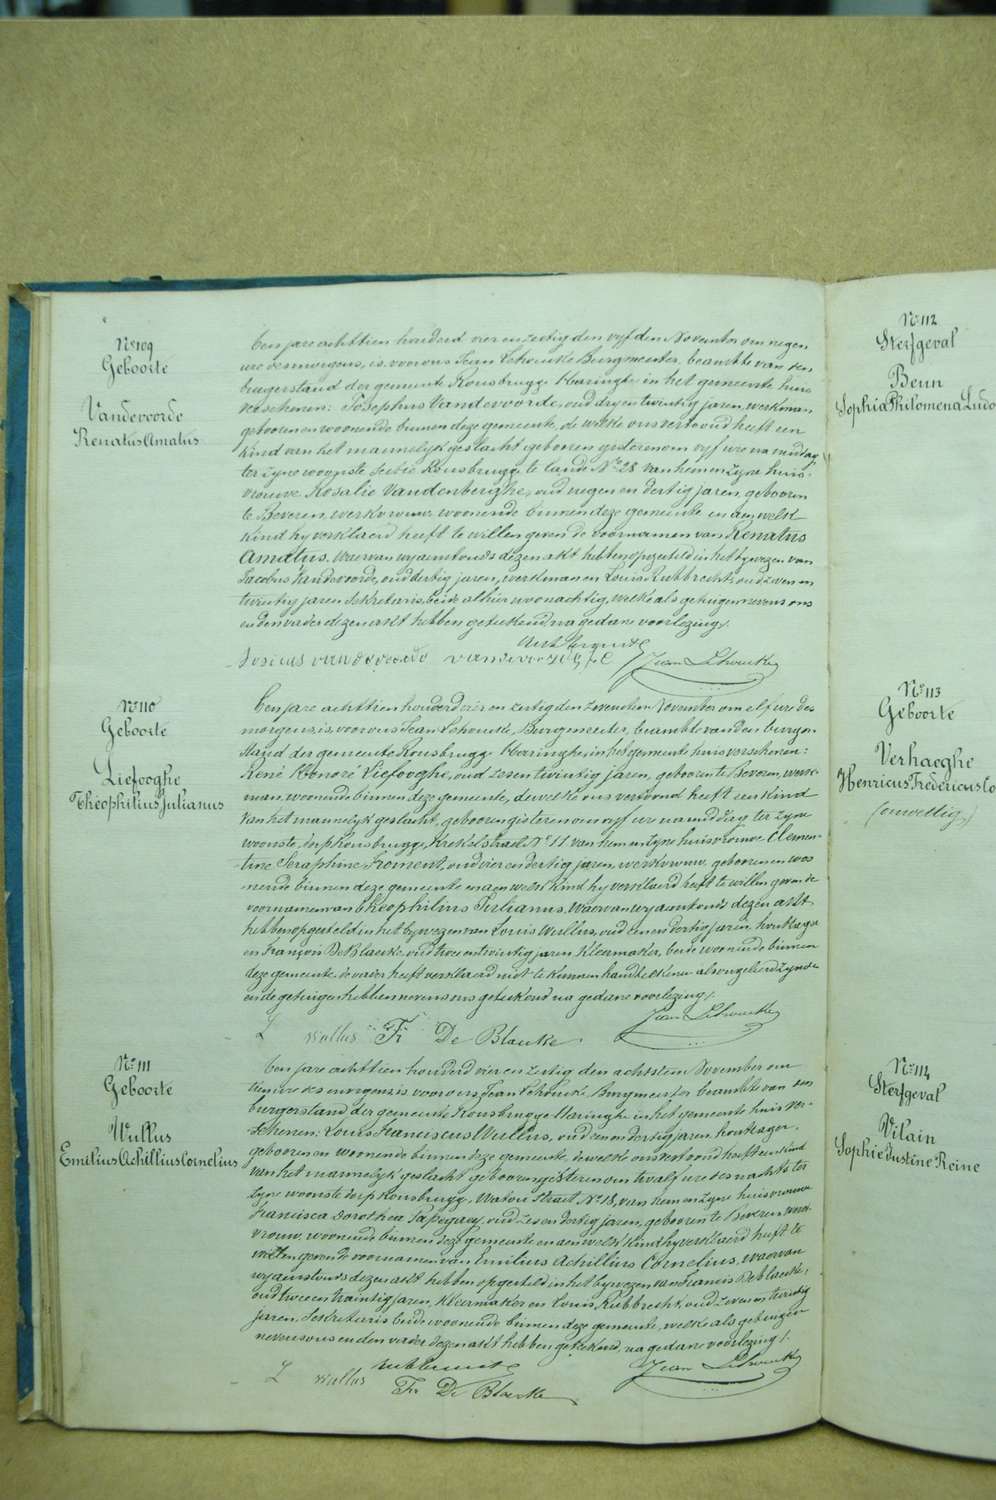 N° 109
Geboorte
Vandevoorde
Renatus Amatus
Een jare achttien honderd vier en zestig den vyfden November om negen
ure des morgens, is voor ons Jean Schoucke Burgmeester, beambte van den
burgerstand der gemeente Rousbrugge Haringhe in het gemeente huis
verschenen: Josephus Vandevoorde, oud dry en twintig jaren, werkman,
geboren en woonende binnen deze gemeente, de welke ons vertoond heeft een
kind van het mannelyk geslacht geboren gisteren om vyf ure na middag
ter zyne woonste Rousbrugge te lande N° 28 van hem en zyne huis-
vrouwe Rosalie Vandenberghe, oud negen en dertig jaren, geboren
te Beveren, werkvrouw, woonende binnen deze gemeente en aen welk
kind hy verklaerd heeft te willen geven de voornamen van Renatus
Amatus. Waervan wy aenstonds dezen akt hebben opgesteld in het bywezen van
Jacobus Vandevoorde, oud dertig jaren, werkman en Louis Rubbrecht oud zeven en
twintig jaren sekretaris, beide alhier woonachtig, welke als getuigen nevens ons
en den vader dezen akt hebben geteekend na gedane voorlezing /.
vandevoorde
N° 110
Geboorte
Liefooghe
Theophilius Julianus
Een jare achttien honderd vier en zestig den zevensten November om elf ure des
morgens, is voor ons Jean Schoucke, Burgmeester, beambte van den burger-
stand der gemeente Rousbrugge Haringhe, in het gemeente huis verschenen:
René Honoré Liefooghe, oud zes en twintig jaren, geboren te Beveren, werk-
man, woonende binnen deze gemeente, dewelke ons vertoond heeft een kind
van het mannelyk geslacht, geboren gisteren om vyf ure na middag ter zyne
woonste, dorp Rousbrugge, Krekelstraet N° 11 van hem en zyne huisvrouwe Clemen-
tine Seraphine Froment, oud vier en dertig jaren, werkvrouw, geboren en woo-
nende binnen deze gemeente en aen welk kind hy verklaerd heeft te willen geven de
voornamen van Theophilius Julianus. Waervan wy aenstonds dezen akt
hebben opgesteld in het bywezen van Louis Wullus, oud een en dertig jaren, houtzager
en François De Blaucke, oud twee en twintig jaren kleermaker, beide woonende binnen
deze gemeente. De vader heeft verklaerd niet te kunnen handteekenen als ongeleerd zynde
en de getuigen hebben nevens ons geteekend na gedane voorlezing /.
L wullus Fr De Blaucke
N° 111
Geboorte
Wullus
Emilius Achillius Cornelius
Een jare achttien honderd vier en zestig den achtsten November om
tien ure des morgens is voor ons Jean Schoucke, Burgmeester beambte van den
burgerstand der gemeente Rousbrugge Haringhe in het gemeente huis ver-
schenen: Louis Franciscus Wullus, oud een en dertig jaren, houtzager,
geboren en woonende binnen deze gemeente, dewelke ons vertoond heeft een kind
van het mannelyk geslacht geboren gisteren ten twalf ure des nachts ter
zyne woonste dorp Rousbrugge, Watou Straet N° 18, van hem en zyne huisvrouwe
Francisca Dorothea oud zes en dertig jaren, geboren te Beveren, werk-
vrouw, woonende binnen deze gemeente en aen welk kind hy verklaerd heeft te
willen geven de voornamen van Emilius Achillius Cornelius, waervan
wy aenstonds dezen akt hebben opgesteld in het bywezen van Francis Deblaucke,
oud twee en twintig jaren, kleermaker en Louis Rubbrecht, oud zeven en twintig
jaren, Sekretaris beide woonende binnen deze gemeente, welke als getuigen
nevens ons en den vader dezen akt hebben geteekend, na gedane voorlezing /.
L wullus
Fr De Blaucke
N° 112
Sterfgeval
Beun
Sophia Philomena Ludo
N° 113
Geboorte
Verhaeghe
Henricus Fredericus Co
(onwettig)
N° 114
Sterfgeval
Vilain
Sophie Justine Reine